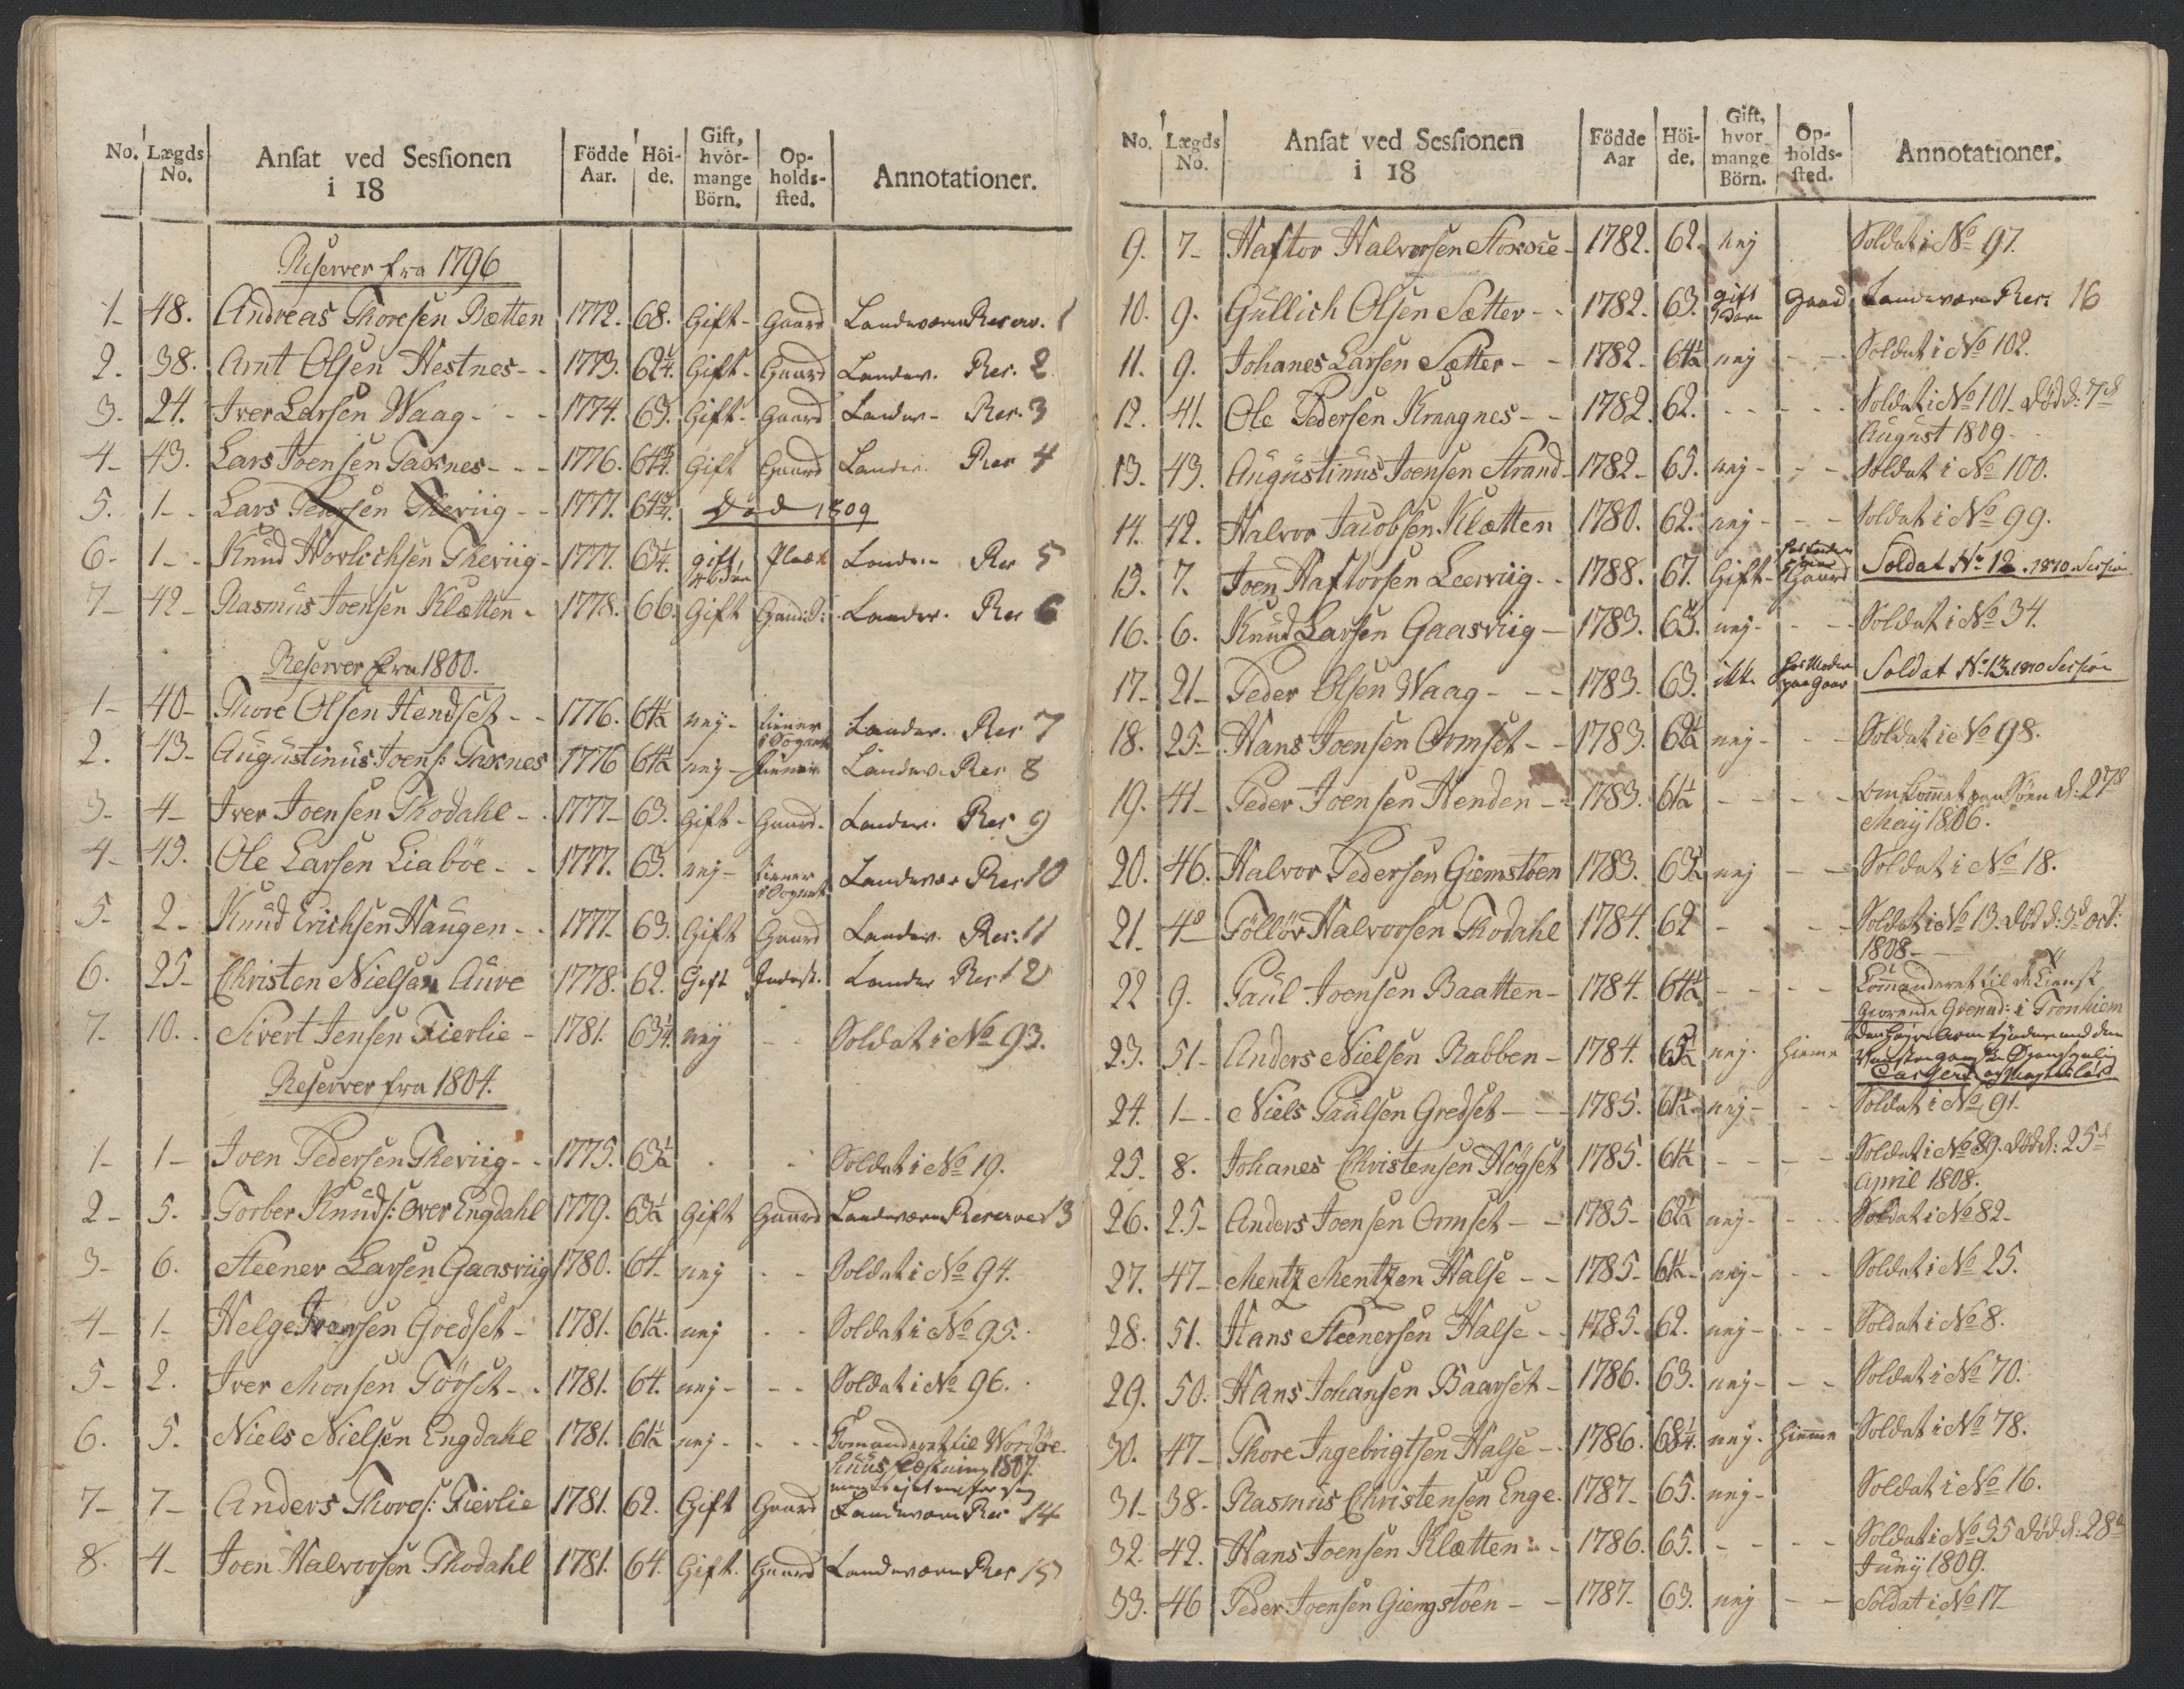 No. Lægds No. Ansat ved Sessionen i 18 Födde Aar. Höi-de. Gift, hvor-mange Börn. Op-holds-sted. Annotationer.
Reserver fra 1796
1- 48. Andreas Thoresen Bætten 1772. 68. Gift- Gaard Landeværn Reserv. 1
2. 38. Arnt Olsen Hestnes - - 1773. 62¼. Gift- Gaard Landev. Res. 2
3. 24. Iver Larsen Waag - - - 1774. 63. Gift- Gaard Landev- Res. 3
4- 43. Lars Joensen Taxnes - - - 1776. 64¾. Gift Gaard Landev. Res 4
5. 1- Lars Pedersen Theviig - - 1777. 64¾. Død 1809
6- 1- Knud Hovlichsen Theviig- 1777. 63¼. gift Plads Landv- Res 5
7- 42- Rasmus Joensen Klætten - 1778. 66. Gift Landev. Res 6
Reserver fra 1800.
1- 40- Thore Olsen Hendset - - 1776. 64½ nej- tiener i Sognet Landev. Res 7
2. 43- Augustinus Joens: Taxnes 1776 64½ nej- tiener Landev. Res 8
3- 4- Iver Joensen Thodahl - - 1777- 63. Gift- Gaard- Landev. Res 9
4- 49. Ole Larsen Liabøe - - 1777. 63. nej- tiener i Sognet Landevær Res 10
5- 2- Knud Erichsen Haugen - - 1777. 63. Gift Gaard Landev. Res. 11
6. 25- Christen Nielsen Aure 1778. 62. Gift Inderst. Landev Res 12
7- 10. Sivert Jensen Fierlie - 1781. 63¼. nej - - Soldat i No 93.
Reserver fra 1804.
1- 1- Joen Pedersen Theviig - - 1775. 63½ - - Soldat i No 19.
2- 5. Torber Knuds: Over Engdahl 1779. 63½ Gift Gaard Landeværn Reserve 13
3- 6. Steener Larsen Gaasviig 1780. 64- nej - - Soldat i No 94.
4- 1- Helge Iversen Gredset - 1781. 61½. nej - - Soldat i No 95.
5- 2. Iver Monsen Törset - - 1781. 64. nej- - - Soldat i No 96.
6. 5. Niels Nielsen Engdahl 1781. 61½ nej- - - Comanderet til Wordöe-
huus Fæstning 1807.
7- 7- Anders Thores: Fierlie 1781. 62. Gift Gaard Landeværn Res 14
8. 4- Joen Halvorsen Thodahl 1781. 64. Gift. Gaard Landeværn Res 15
No. Lægds No. Ansat ved Sessionen i 18 Födde Aar Höi-de. Gift, hvor mange Börn. Op-holds-sted. Annotationer.
9. 7- Haftor Halvorsen Stoxsie - 1782. 62. nej Soldat i No 97.
10. 9. Gullich Olsen Sætter - - 1782. 63. gift Gaad Landeværn Res. 16
11. 9. Johanes Larsen Sætter - - 1782- 64½ nej - - Soldat i No 102.
12. 41. Ole Pedersen Kraagnes - - 1782. 62. - - - - Soldat i No 101- död d: 7d
August 1809-
13. 43. Augustinus Joensen Strand- 1782- 65. nej- - - Soldat i No 100.
14. 42. Halvor Jacobsen Klætten 1780. 62. nej- - - Soldat i No 99.
15. 7. Joen Haftorsen Leerviig - - 1788. 67. Gift- Gaard Soldat No 12. 1810. Session
16. 6. Knud Larsen Gaasviig - 1783. 63. nej- - - Soldat i No 34.
17- 21- Peder Olsen Waag - - - 1783. 63. ikke hos Moder paa Gaar Soldat No 13. 1810 Session
18. 25- Hans Joensen Ormset - - 1783. 62½ nej- - - Soldat i No 98.
19. 41- Peder Joensen Henden - - 1783. 61½ - - - - omkommet paa Söen d: 27d
Maij 1806.
20. 46. Halvor Pedersen Giemstöen 1783. 63½ nej - - Soldat i No 18.
21. 4- Föllör Halvorsen Thodahl 1784. 62 - - - Soldat i No 13. död d: 3d oct:
1808-
22 9. Paul Joensen Baatten - 1784. 64½ - - - - Commanderet til de Tienst
giörende Grenad: i Tronhiem
23. 51- Anders Nielsen Rabben - 1784. 65½ nej. hieme
24. 1- Niels Paulsen Gredset - - 1785. 61½- nej- - - Soldat i No 91-
25. 8. Johanes Christensen Högset 1785. 61½ - - - - Soldat i No 89. död d: 25d
April 1808.
26. 25- Anders Joensen Ormset - - 1785- 62½ nej- - - Soldat i No 82-
27. 47- Mentz Mentzen Halse - - 1785- 61½- nej- - - Soldat i No 25.
28. 51. Hans Steenersen Halse - - 1785- 62. nej- - - Soldat i No 8.
29. 50. Hans Johansen Baarset - 1786. 63. nej- - - Soldat i No 70.
30. 47- Thore Ingebrigtsen Halse - - 1786. 68¼. nej. hieme Soldat i No 78.
31- 38- Rasmus Christensen Enge. 1787- 65. nej- Soldat i No 16.
32. 42. Hans Joensen Klætten - - 1786. 65. - - - - Soldat i No 55 död d: 28d
Junij 1809.
33. 46 Peder Joensen Giemstöen - - 1787- 63. nej - - Soldat i No 17-